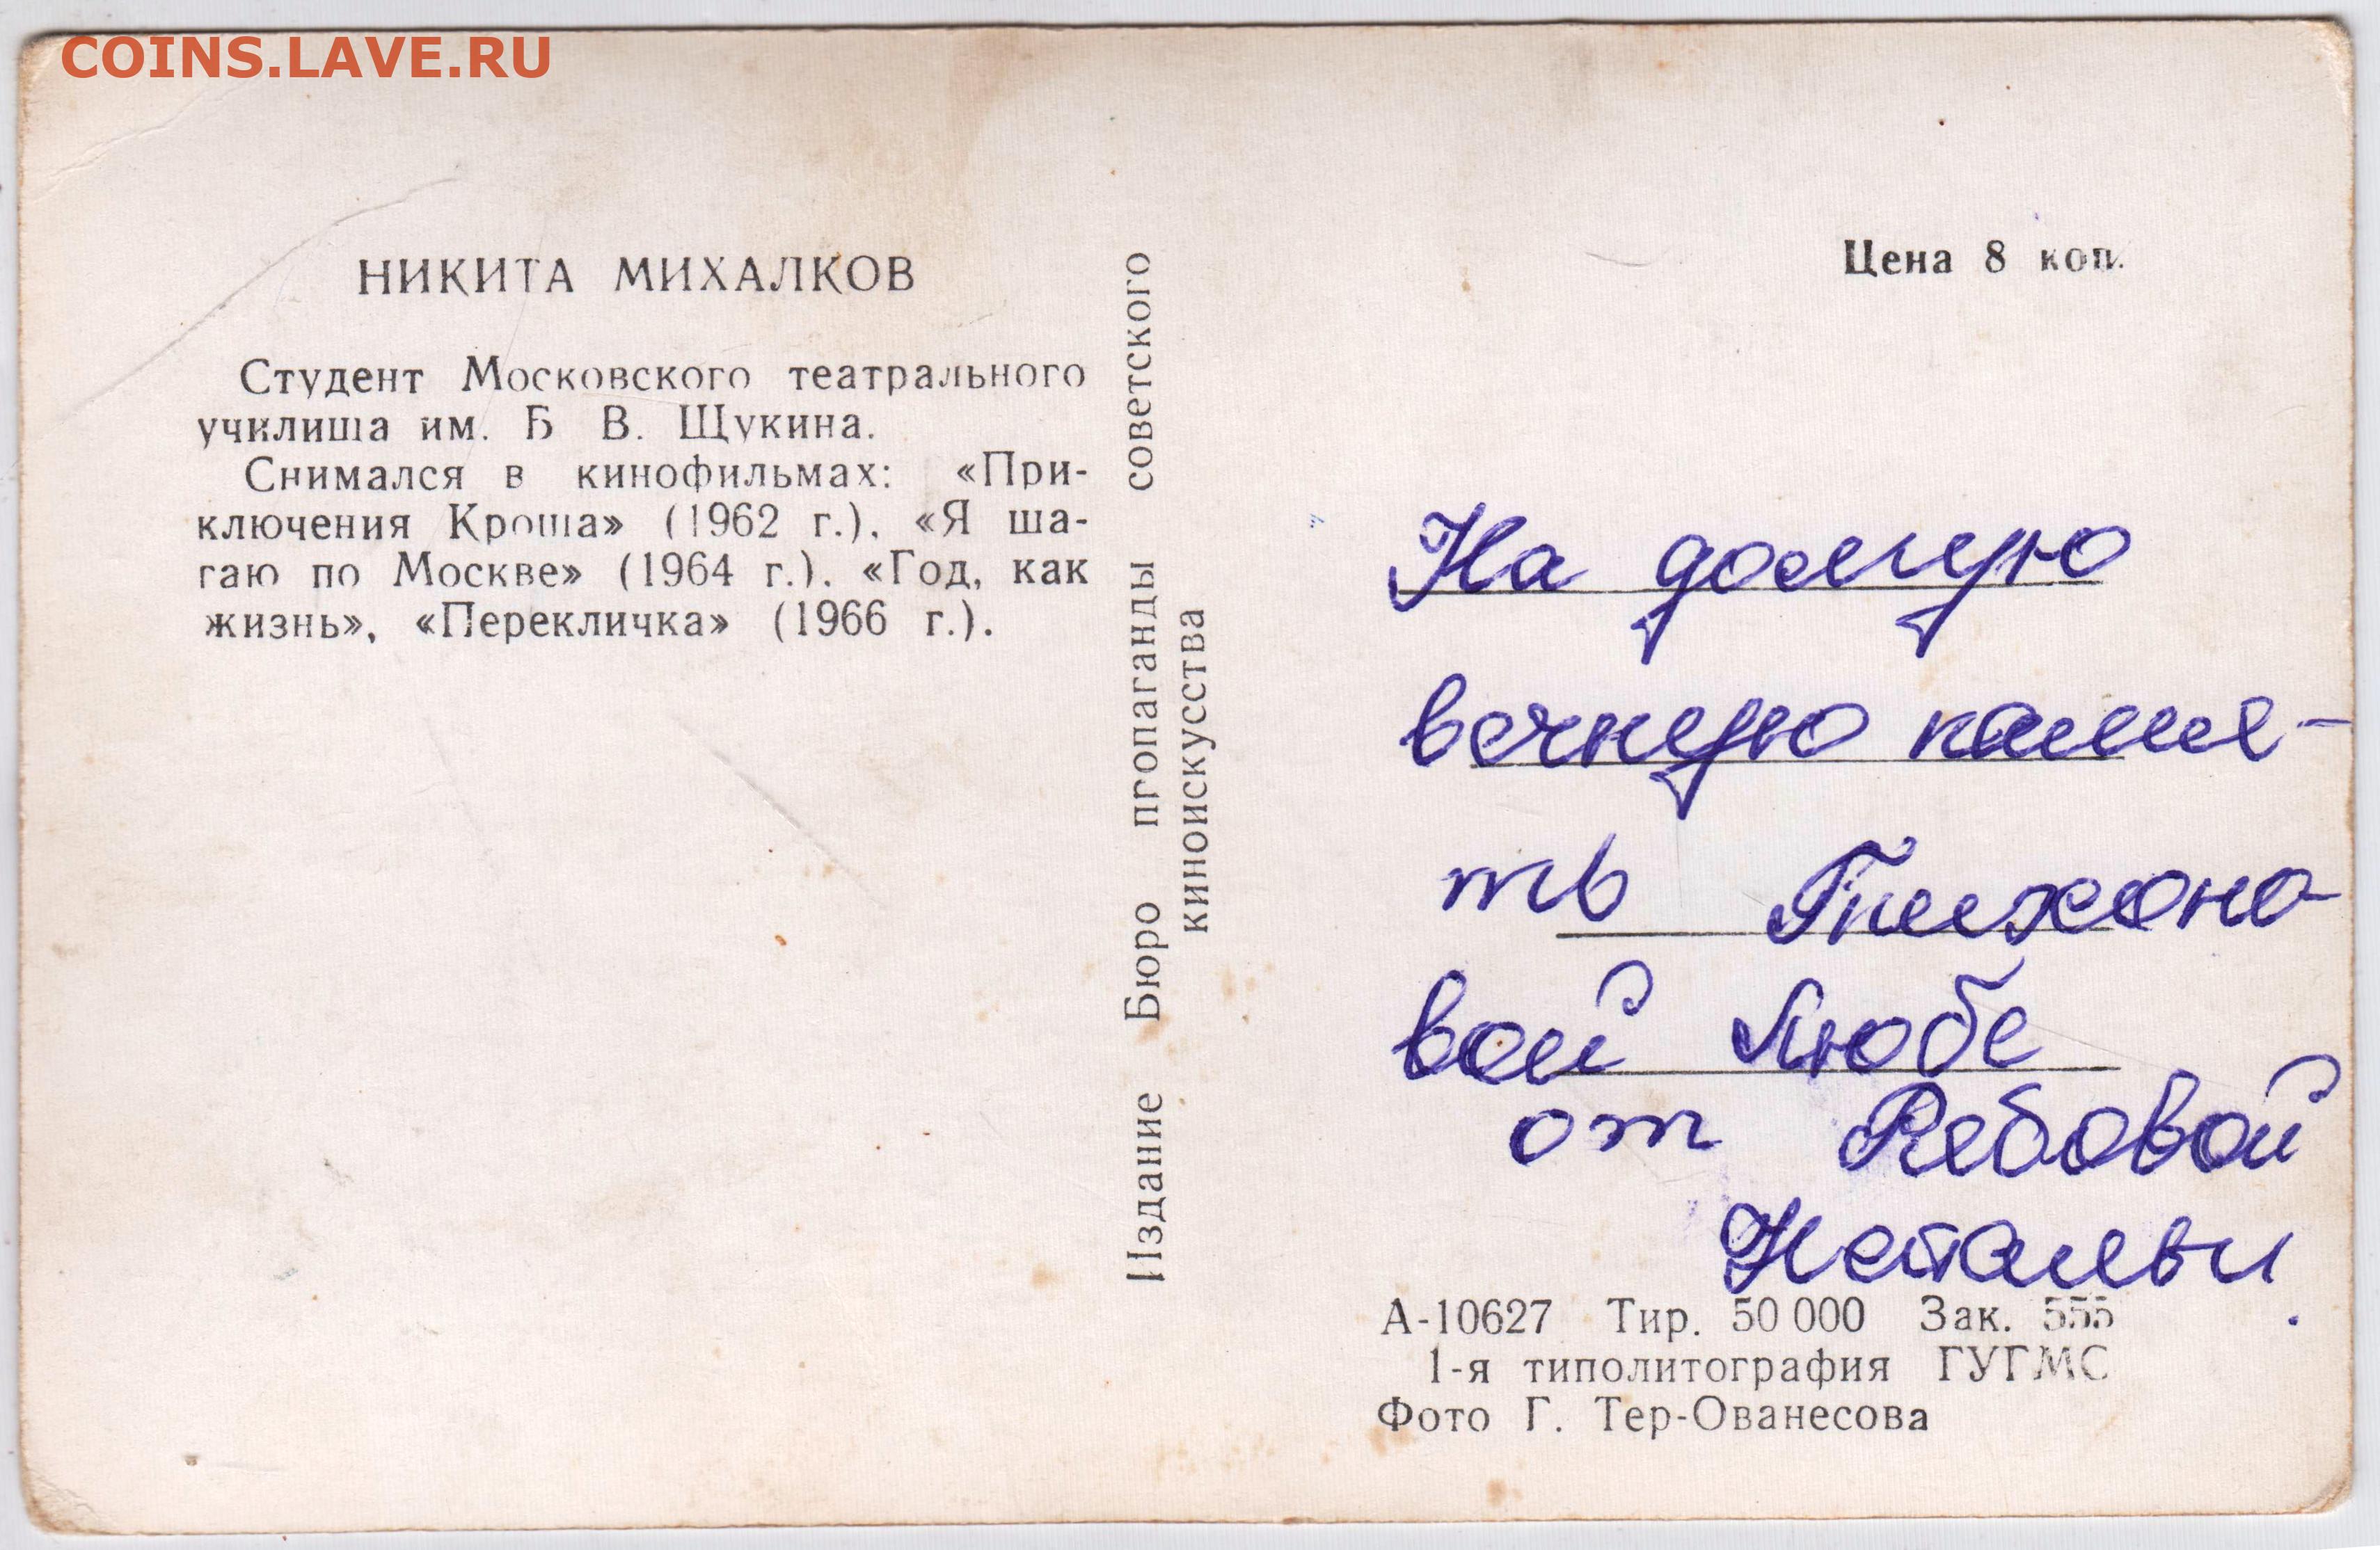 COINS.LAVE.RU
НИКИТА МИХАЛКОВ
Студент Московского театрального
училища им. Б В. Щукина.
Снимался в кинофильмах: «При-
ключения Кроша» (1962 г.), «Я ша-
гаю по Москве» (1964 г.), «Год, как
жизнь», «Перекличка» (1966 г.).
Издание Бюро пропаганды советского
киноискусства
Цена 8 коп.
На долгую
вечную памя-
ть Тихоно-
вой Любе
от Рябовой
Натальи
А-10627 Тир. 50 000 Зак. 555
1-я типолитография ГУГМС
Фото Г. Тер-Ованесова